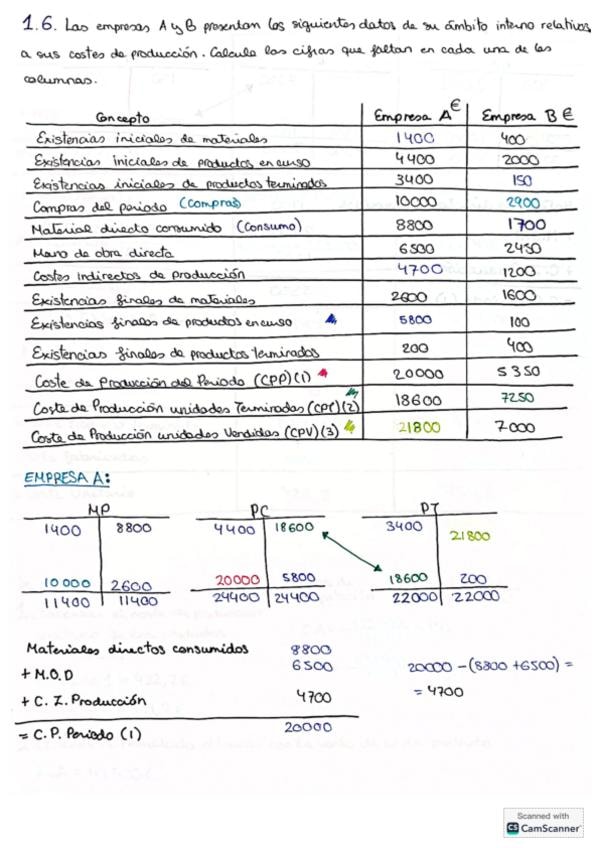 1.6. Las empresas A y B presentan los siguientes datos de su ámbito interno relativos
a sus costes de producción. Calcula las cifras que faltan en cada una de las
columnas.
Concepto Empresa A € Empresa B €
Existencias iniciales de materiales 1400 400
Existencias iniciales de productos en curso 4400 2000
Existencias iniciales de productos terminados 3400 150
Compras del periodo (Compras) 10000 2900
Material directo consumido (Consumo) 8800 1700
Mano de obra directa 6500 2450
Costes indirectos de producción 4700 1200
Existencias finales de materiales 2600 1600
Existencias finales de productos en curso 5800 100
Existencias finales de productos terminados 200 400
Coste de Producción del Periodo (CPP)(1) 20000 5350
Coste de Producción unidades Terminadas (CPT)(2) 18600 7250
Coste de Producción unidades Vendidas (CPV)(3) 21800 7000
EMPRESA A:
MP PC PT
1400 8800 4400 18600 3400
21800
10000 2600 20000 5800 18600 200
11400 11400 24400 24400 22000 22000
Materiales directos consumidos 8800
+ M.O.D 6500 20000 - (8800 + 6500) =
+ C. I. Producción 4700 = 4700
= C.P. Periodo (1) 20000
Scanned with
CS CamScanner